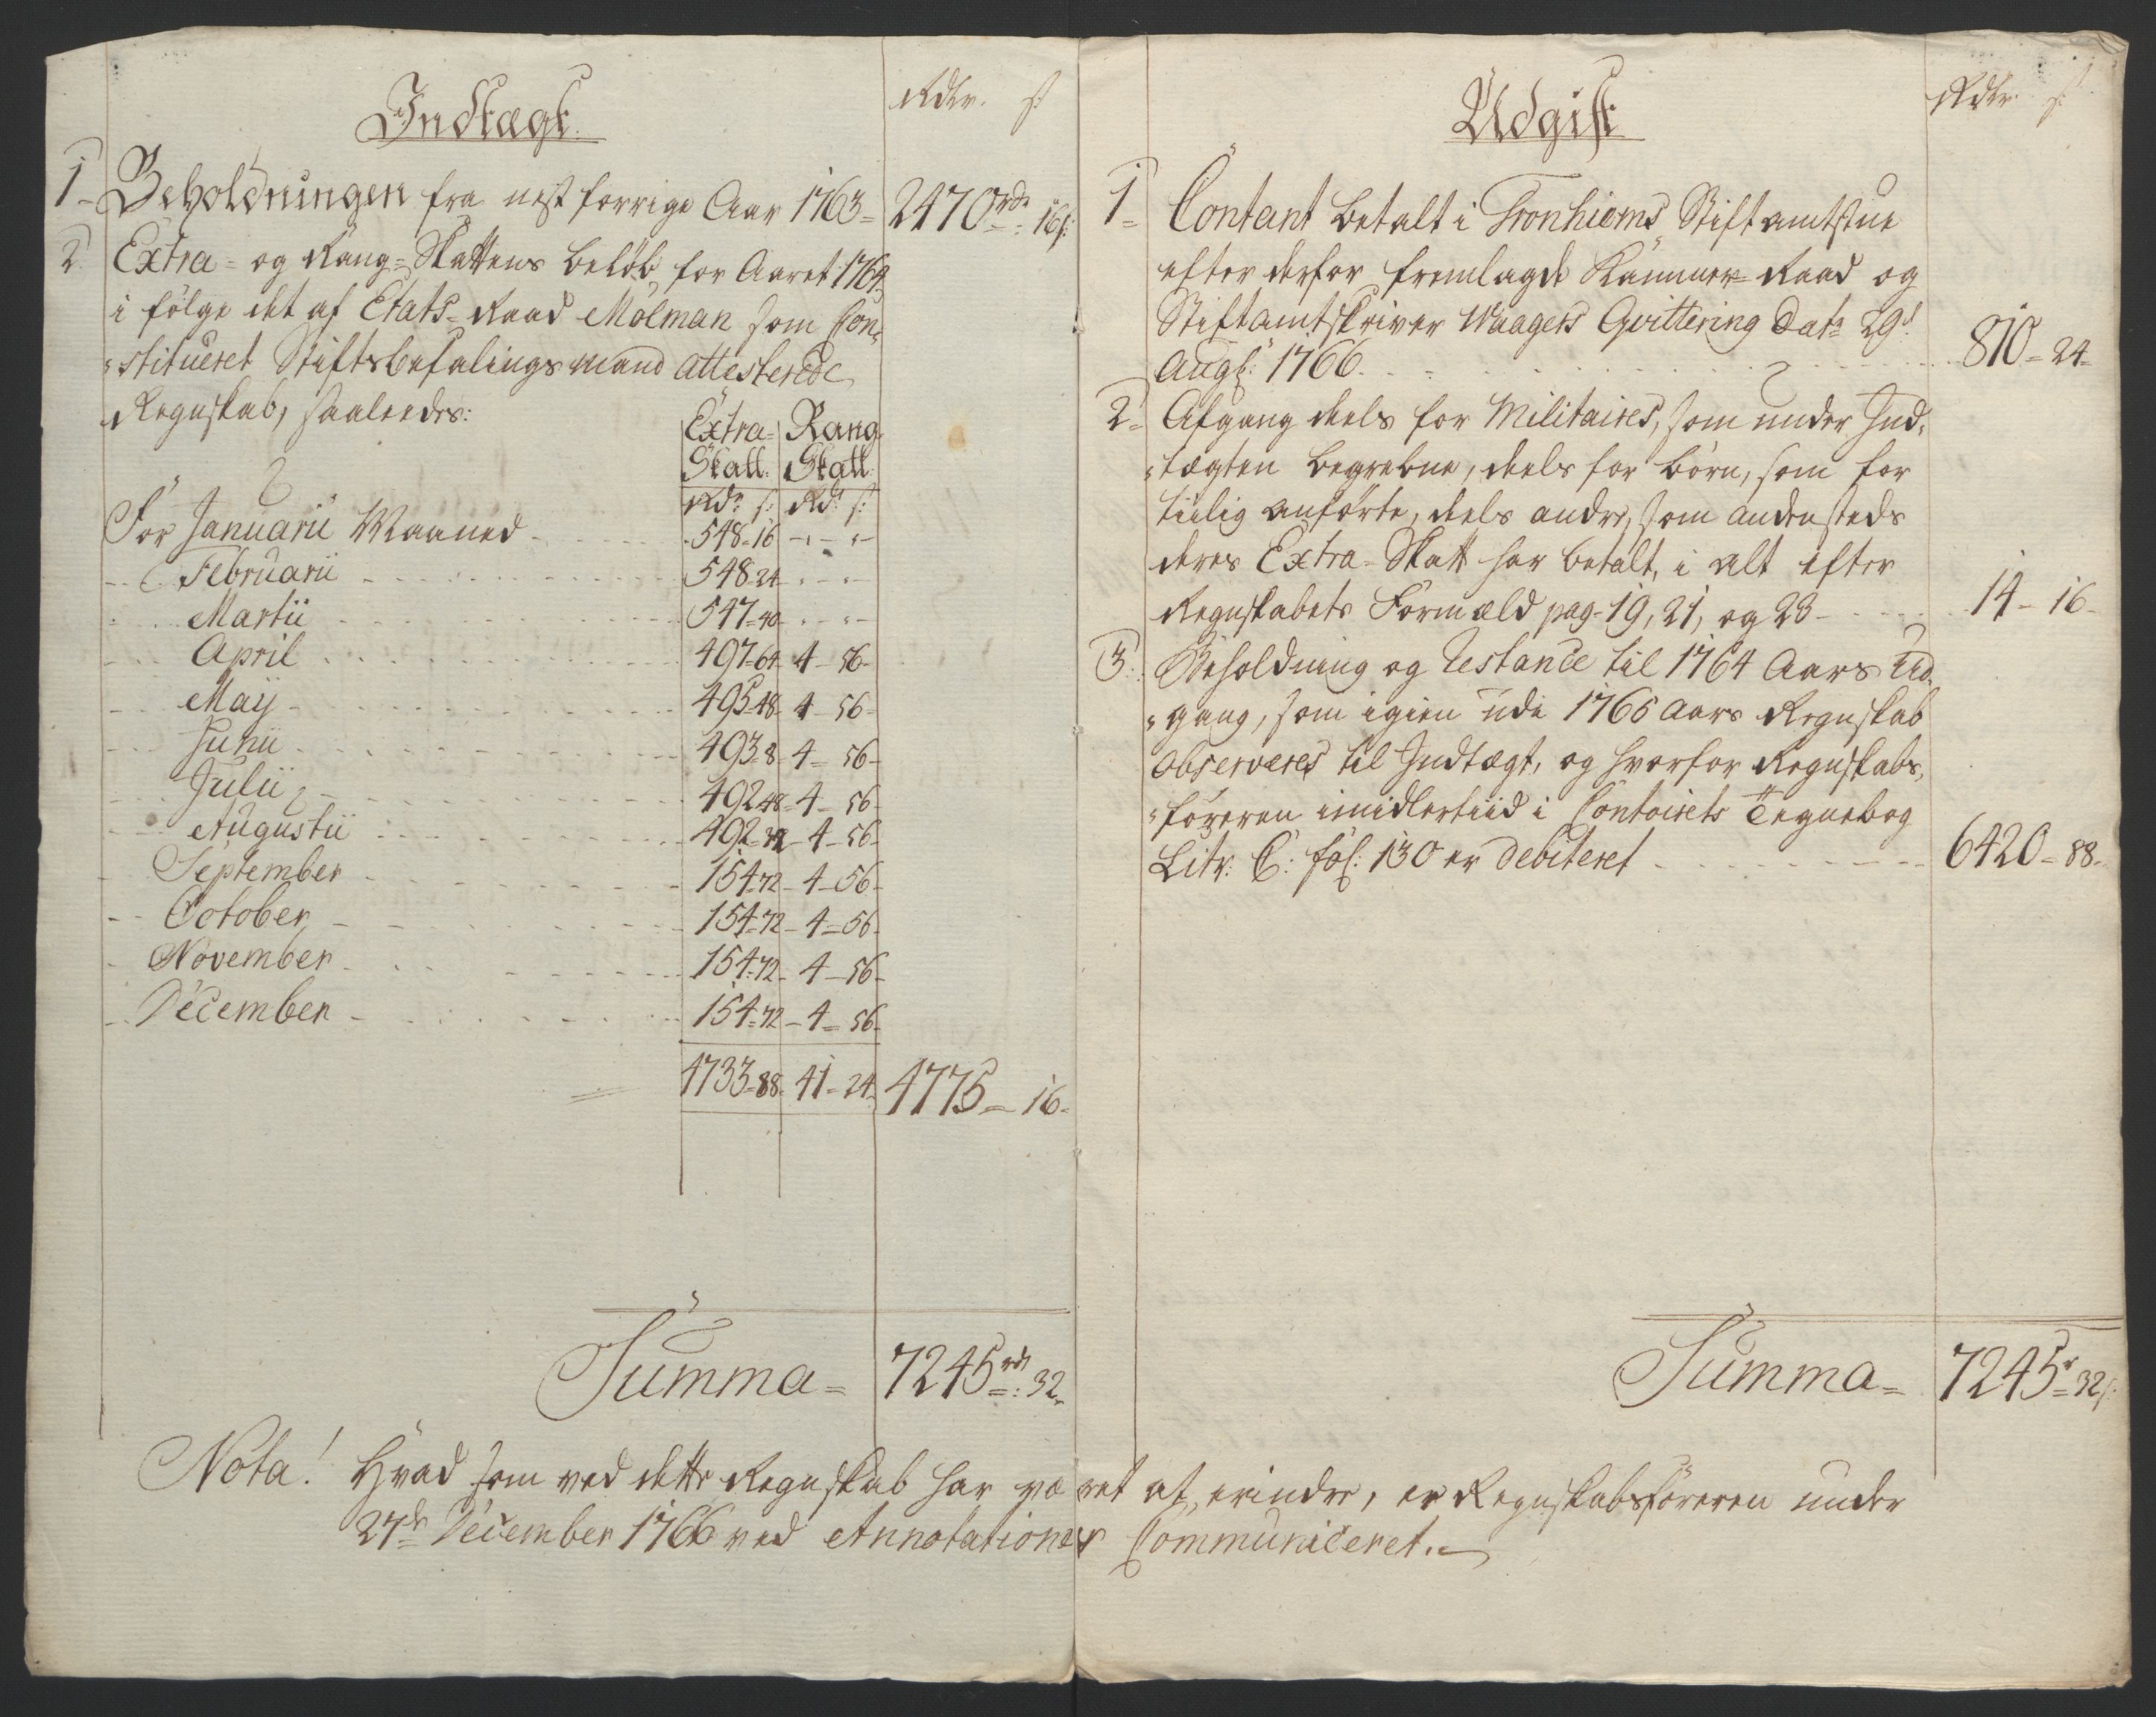 Indtægt. Rdlr. s:
1 - Beholdningen fra nest forrige Aar 1763 = 2470 rd = : 16 s:
2. Extra = og Rang = Skattens beløb for Aaret 1764
i følge det af Etats = Raad Mølman som Con-
stitueret Stiftsbefalingsmand attesterede
Regnskab, saaledes:
Extra = Rang
Skatt. Skatt
Rd: s: Rd: s:
For Januarii Maaned - 548 - 16 - " - " -
Februarii - 548 - 24 - " - " -
Martii - 547 - 40 - " - " -
April - 497 - 64 - 4 - 56 -
Maij - 495 - 48 - 4 - 56 -
Junii - 493 - 8 - 4 - 56 -
Julii - 492 - 48 - 4 - 56 -
Augustii - 492 - 32 - 4 - 56 -
September - 154 - 72 - 4 - 56 -
October - 154 - 72 - 4 - 56 -
November - 154 - 72 - 4 - 56 -
December - 154 - 72 - 4 - 56 -
4733 - 88 - 41 - 24 - 4775 - 16 -
Summa = 7245 rd = : 32
Udgift Rdlr. s:
1 = Contant betalt i Tronhiems Stiftamtstue
efter derfor fremlagde Kammer = Raad og
Stiftamtskriver Waagers Qvittering Dat: 29d
Augs: 1766. 810 - 24 -
2 = Afgang deels for Militaires, som under Ind-
tægten begrebne, deels for børn, som for
tiilig anførte, deels andre, som andensteds
deres Extra = Skatt har betalt, i alt efter
Regnskabets Formæld pag. 19, 21, og 23 - 14 - 16 -
3. Beholdning og Restance til 1764 Aars Ud-
gang, som igien udi 1765 Aars Regnskab
observeres til Indtægt, og hvorfor Regnskabs-
føreren imidlertiid i Contoirets Tegnebog
Litr: C: fol: 130 er debiteret - 6420 - 88 -
Summa = 7245 r = 32 s:
Nota! Hvad som ved dette Regnskab har været at erindre, er Regnskabsføreren under
27de December 1766 ved Annotationer Communiceret.